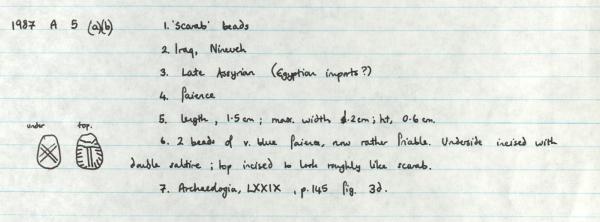 1987 A 5 (a)(b) 1. 'Scarab' beads
2. Iraq, Nineveh
3. Late Assyrian (Egyptian imports?)
4. Faience
5. length, 1.5cm; max. width 1.2cm; ht, 0.6 cm.
under top. 6. 2 beads of v. blue faience, now rather friable. Underside incised with
double saltire; top incised to look roughly like scarab.
7. Archaeologia, LXXIX, p.145 fig. 3d.